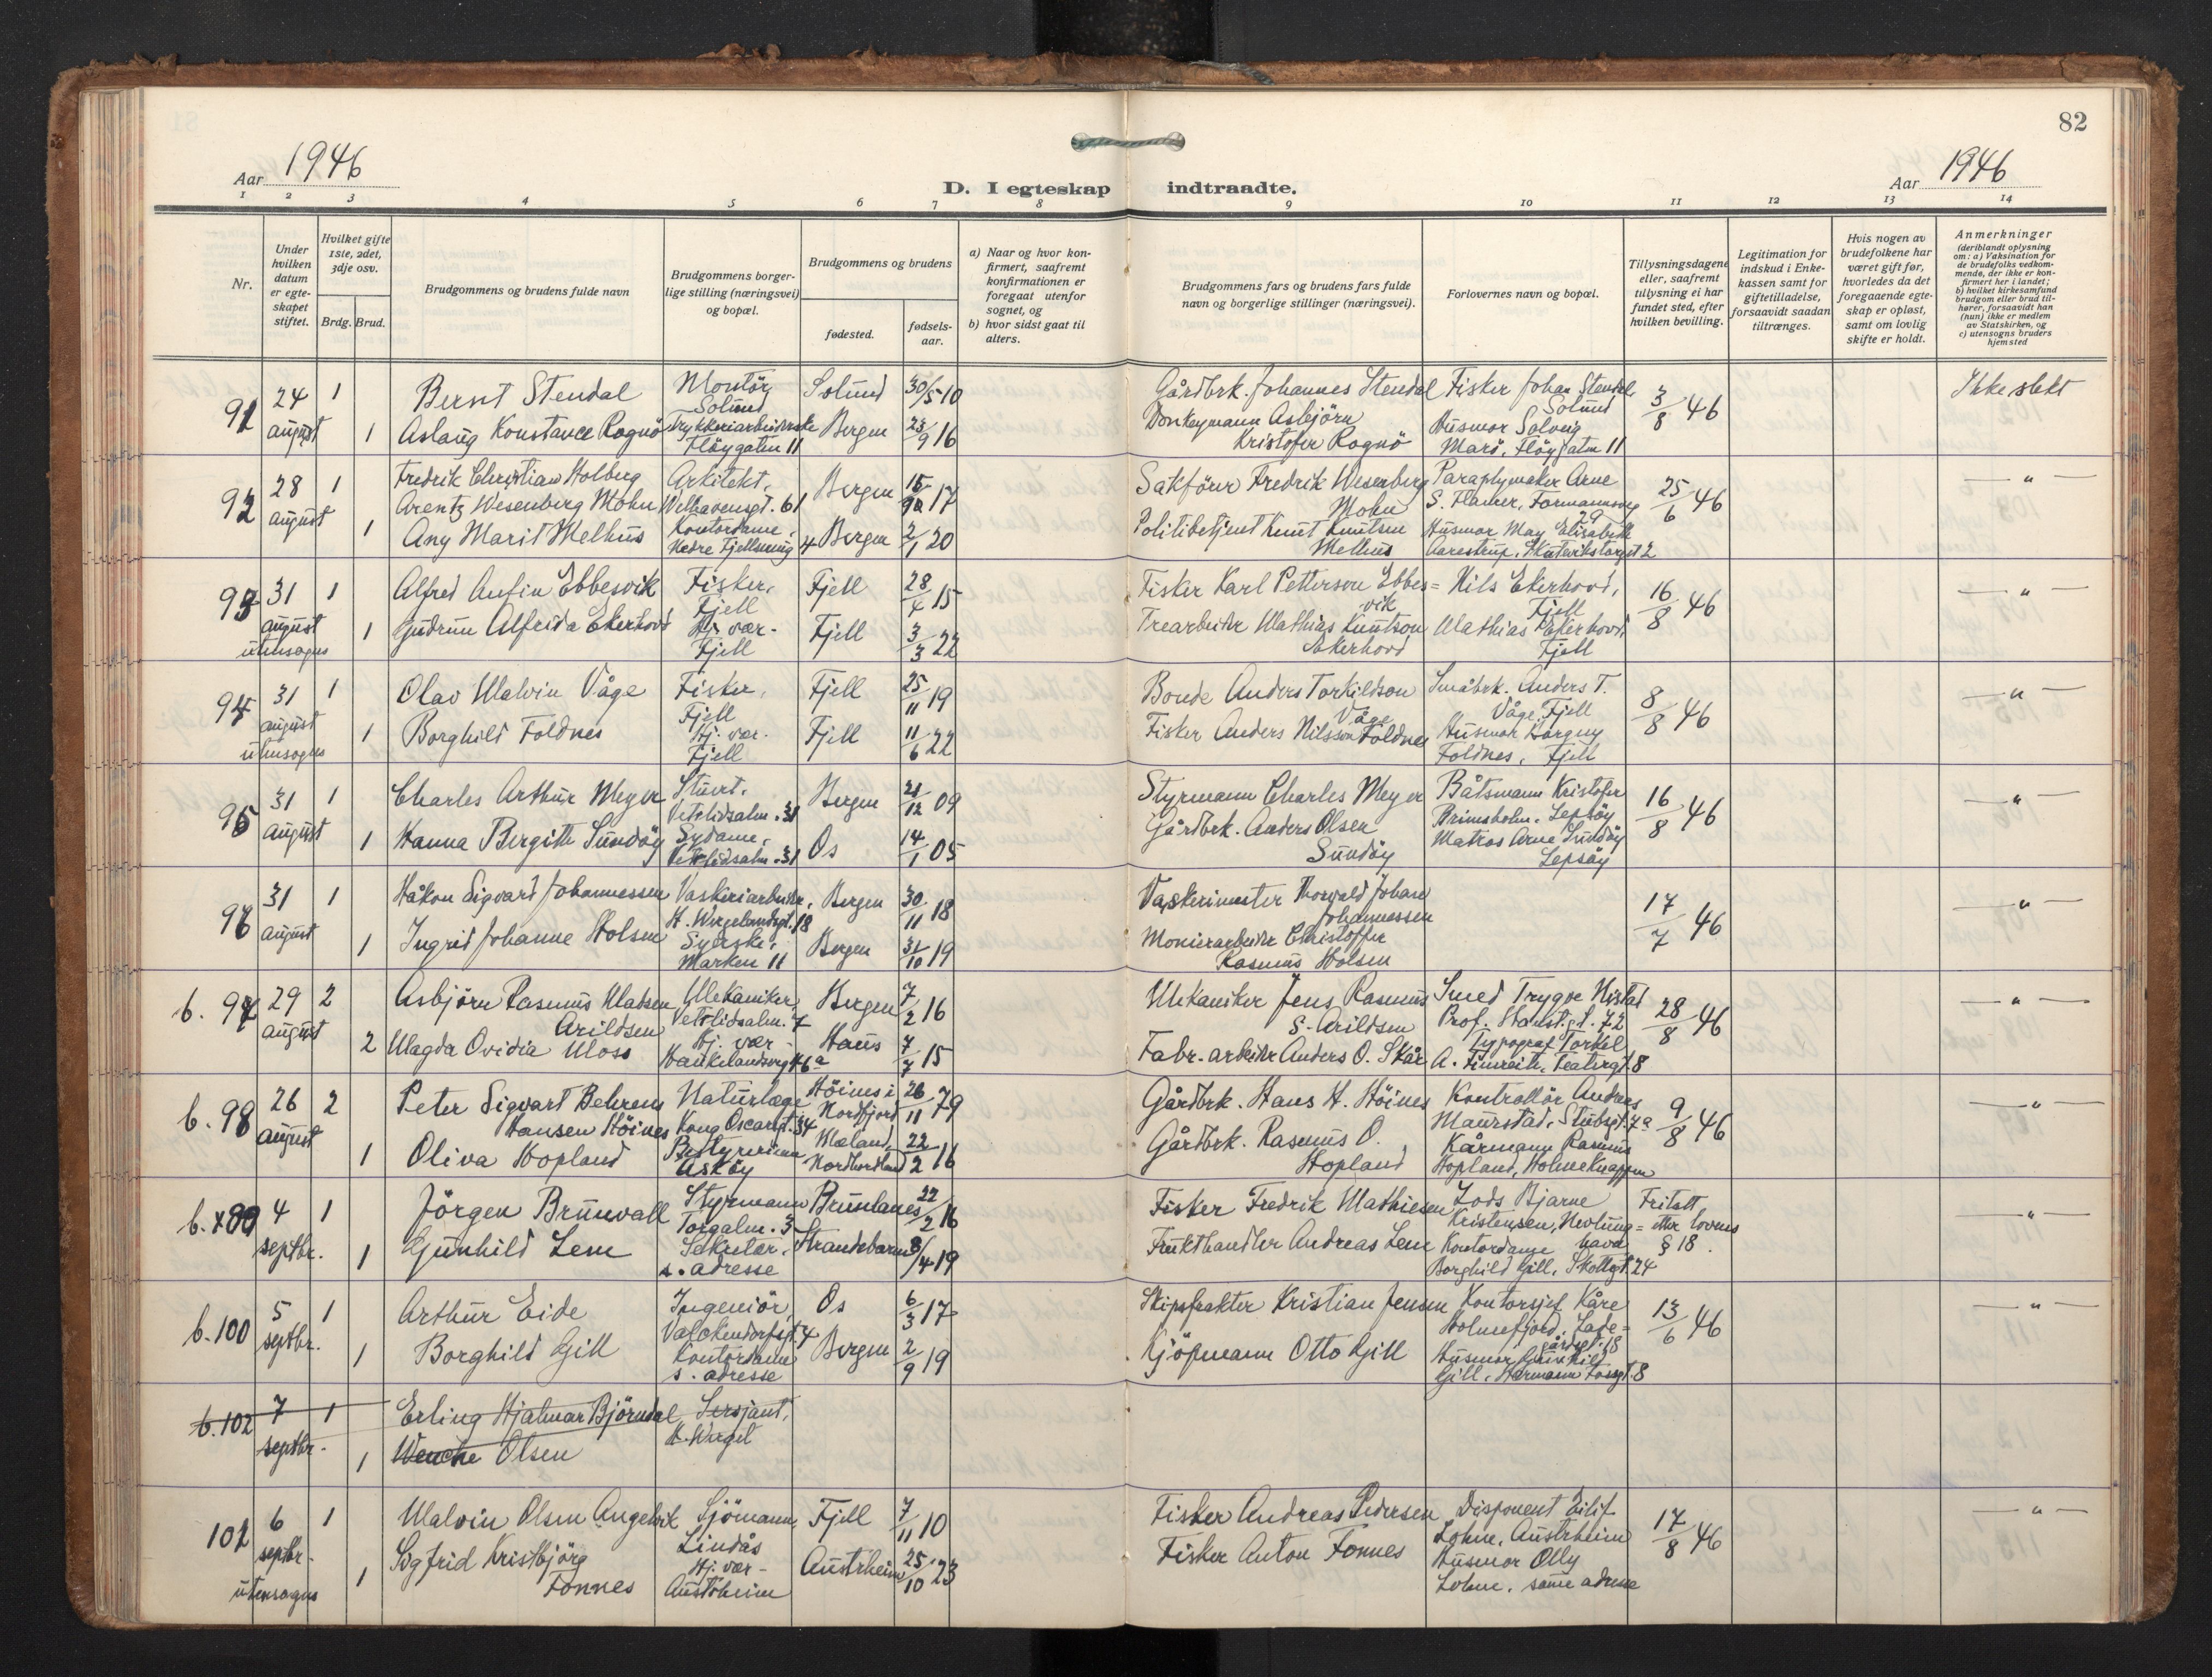 82
Aar 1946
D. I egteskap indtraadte.
Aar 1946
1 2 3 4 5 6 7 8 9 10 11 12 13 14
Nr.
Under hvilken datum er egteskapet stiftet.
Hvilket gifte 1ste, 2det, 3dje osv.
Brdg. Brud.
Brudgommens og brudens fulde navn
Brudgommens borgerlige stilling (næringsvei) og bopæl.
Brudgommens og brudens
fødested.
fødselsaar.
a) Naar og hvor konfirmert, saafremt konfirmationen er foregaat utenfor sognet, og
b) hvor sidst gaat til alters.
Brudgommens fars og brudens fars fulde navn og borgerlige stillinger (næringsvei).
Forlovernes navn og bopæl.
Tillysningsdagene eller, saafremt tillysning ei har fundet sted, efter hvilken bevilling.
Legitimation for indskud i Enkekassen samt for giftetilladelse, forsaavidt saadan tiltrænges.
Hvis nogen av brudefolkene har været gift før, hvorledes da det foregaaende egteskap er opløst, samt om lovlig skifte er holdt.
Anmerkninger
(deriblandt oplysning om: a) Vaksination for de brudefolks vedkommende, der ikke er konfirmert her i landet;
b) hvilket kirkesamfund brudgom eller brud tilhører, forsaavidt han (hun) ikke er medlem av Statskirken, og
c) utensogns bruders hjemsted
91 24 august 1 Bernt Stendal Montör Solund Solund 30/5-10 Gårdbrk. Johannes Stendal Fisker Johan Stendal, Solund 3/8 46 Ikke slekt
1 Aslaug Konstance Rognö Trykkeriarbeiderske Flöygaten 11 Bergen 23/9 16 Donkeymann Asbjörn Kristofer Rognö Husmor Solveig Marö, Flöygaten 11
92 28 august 1 Fredrik Christian Holberg Arentz Wesenberg Mohn Arkitekt, Welhavensgt. 61 Bergen 15/12 17 Sakförer Fredrik Wesenberg Mohn Paraplymaker Arne S. Flamer, Formannsveg 29 25/6 46 — " —
1 Any Marit Melhus Kontordame, Nedre Fjellsmug 4 Bergen 2/1 20 Politibetjent Knut Knutsen Melhus Husmor May Elisabeth Aarestrup, Skutevikstorget 2
93 31 august utensogns 1 Alfred Anfin Ebbesvik Fisker, Fjell Fjell 28/4 15 Fisker Karl Petterson Ebbes=vik Nils Ekerhovd, Fjell 16/8 46 — " —
1 Gudrun Alfrida Ekerhovd Hj. vær- Fjell Fjell 3/3 22 Trearbeider Mathias Knutson Ekerhovd Mathias Ekerhovd, Fjell
94 31 august utensogns 1 Olav Malvin Våge Fisker, Fjell Fjell 25/11 19 Bonde Anders Torkildson Våge Småbrk. Anders T. Våge, Fjell 8/8 46 — " —
1 Borghild Foldnes Hj. vær. Fjell Fjell 11/6 22 Fisker Anders Nilsson Foldnes Husmor Dorguy Foldnes, Fjell
95 31 august 1 Charles Arthur Meyer Stuert, Vetrlidsalm. 31 Bergen 21/12 09 Styrmann Charles Meyer Båtsmann Kristofer Brimsholm, Lepsöy 16/8 46 — " —
1 Hanna Bergitte Sundöy Sydame, Vetrlidsalm. 31 Os 14/1 05 Gårdbrk. Anders Olsen Sundöy Matros Arne Sundöy Lepsöy
96 31 august 1 Håkon Sigvard Johannessen Vaskeriarbeider, H. Wergelandsgt. 18 Bergen 30/11 18 Vaskerimester Thorvald Johan Johannessen 17/7 46 — " —
1 Ingrid Johanne Holsen Syerske, Marken 11 Bergen 31/10 19 Monierarbeider Christoffer Rasmus Holsen
b. 97 29 august 2 Asbjörn Rasmus Madsen Arildsen Mekaniker, Vetrlidsalm. 7 Bergen 7/2 16 Mekaniker Jens Rasmus S. Arildsen Smed Trygve Nistad Prof. Hanst. gt. 72 28/8 46 — " —
2 Magda Ovidia Moss Hj. vær- Haukelandsvg 46a Haus 7/7 15 Fabr. arbeider Anders O. Skår Typograf Torkel A. Finneith, Teatergt. 8
b. 98 26 august 2 Peter Sigvart Behrens Hansen Höines Naturlæge Kong Oscarsgt. 34 Höines i Nordfjord 26/11 79 Gårdbrk. Hans H. Höines Kontrollör Andreas Maurstad, Stubsgt. 7a 9/8 46 — " —
1 Oliva Hopland Bestyrerinne Asköy Mæland, Nordhordland 22/2 16 Gårdbrk. Rasmus O. Hopland Kårmann Rasmus Hopland, Holmeknappen
b. 99 4 septbr. 1 Jörgen Brunvall Styrmann Torgalm. 3 Brunlanes 22/2 16 Fisker Fredrik Mathiesen Lods Bjarne Kristensen, Nevlung=havn Fritatt etter lovens § 18. — " —
1 Gunhild Lem Sekretær, s. adresse Strandebarm 8/4 19 Frukthandler Andreas Lem Kontordame Borghild Gill, Skottegt. 24
b. 100 5 septbr. 1 Arthur Eide Ingeniör, Valckendorfsgt. 4 Os 6/3 17 Skipsfrakter Kristian Jensen Kontorsjef Kåre Holmefjord, Lade=gårdsgt. 18 13/6 46 — " —
1 Borghild Gill Kontordame s. adresse Bergen 2/9 19 Kjöpmann Otto Gill Husmor Gunhild Gill, Hermann Fossgt. 8
b. 102 7 septbr. 1 Erling Hjalmar Björndal Sersjant, H. Wergel
1 Wenche Olsen
101 6 septbr. utensogns 1 Malvin Olsen Angelvik Sjömann, Lindås Fjell 7/11 10 Fisker Andreas Pedersen Disponent Eilif Lohne, Austrheim 17/8 46 — " —
1 Sigfrid Kristbjörg Fonnes Hj. vær- Austrheim Austrheim 25/10 23 Fisker Anton Fonnes Husmor Olly Lohne, same adresse